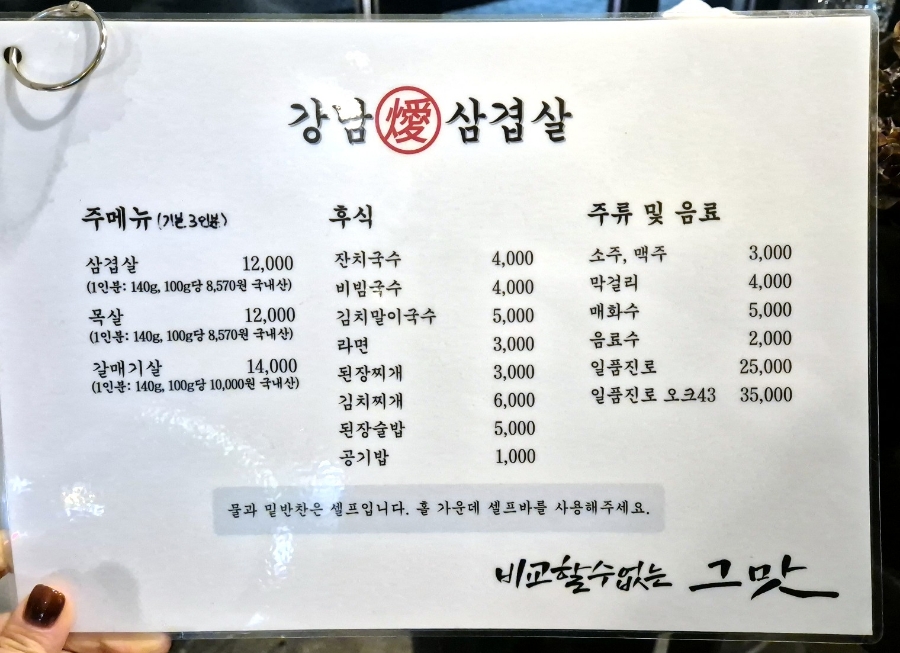 강남 燰 삼겹살
주메뉴 (기본 3인분)
삼겹살 12,000
(1인분: 140g, 100g당 8,570원 국내산)
목살 12,000
(1인분: 140g, 100g당 8,570원 국내산)
갈매기살 14,000
(1인분: 140g, 100g당 10,000원 국내산)
후식
잔치국수 4,000
비빔국수 4,000
김치말이국수 5,000
라면 3,000
된장찌개 3,000
김치찌개 6,000
된장술밥 5,000
공기밥 1,000
주류 및 음료
소주, 맥주 3,000
막걸리 4,000
매화수 5,000
음료수 2,000
일품진로 25,000
일품진로 오크43 35,000
물과 밑반찬은 셀프입니다. 홀 가운데 셀프바를 사용해주세요.
비교할수없는 그맛